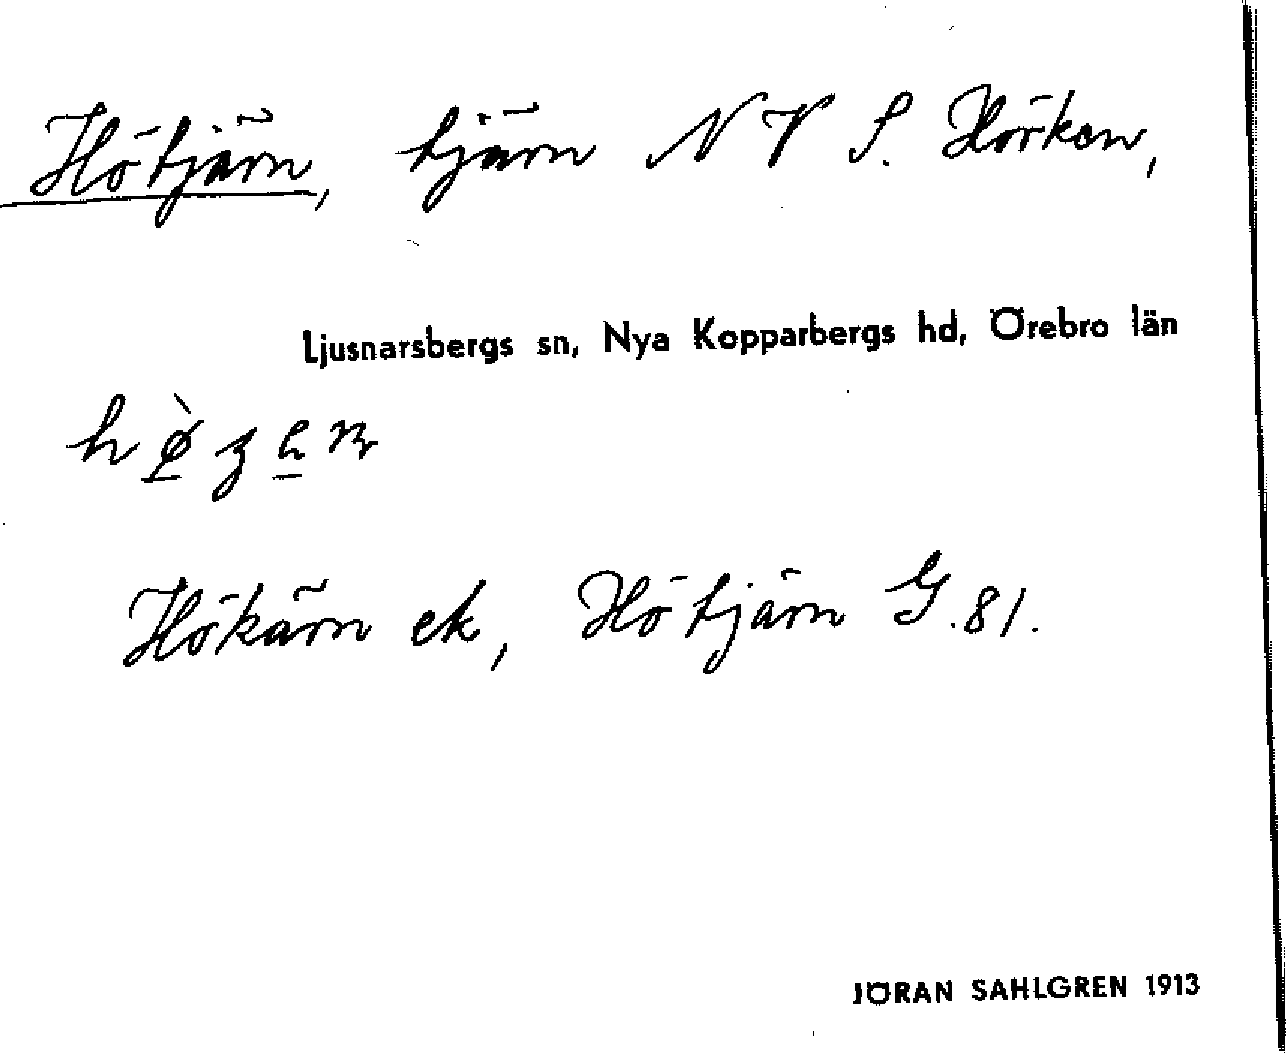 Hötjärn, tjärn NV S. Hörken,
Ljusnarsbergs sn, Nya Kopparbergs hd, Örebro län
Hökärn ek, Hötjärn G.81.
JÖRAN SAHLGREN 1913